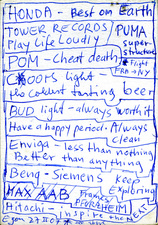 HONDA - Best on Earth
TOWER RECORDS / PUMA
Play Life Loudly
super-
structure
POM - cheat death
* Flight
FRA → NY
Coors light
the coldest tasting beer
BUD light - always worth it
Have a happy period. Always
Clean
Enviga - less than nothing
Better than anything
Benq - Siemens
keep
Exploring
MAX AAB
Franks
PFORZHEIM
Hitachi - Inspire the
NEXT